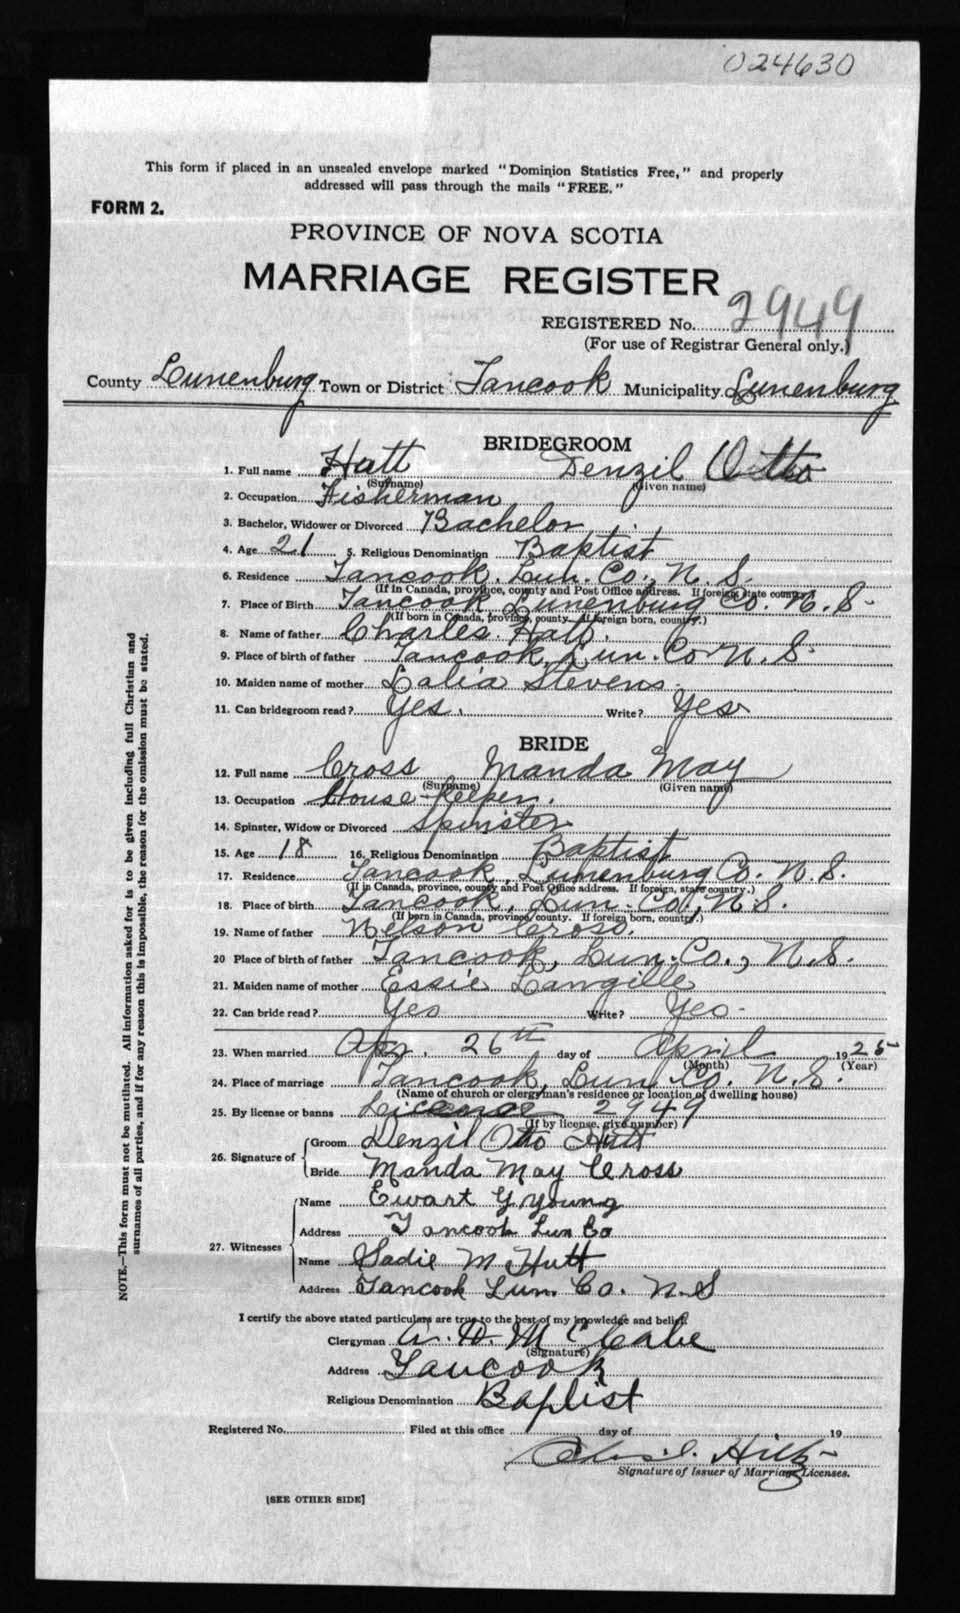 024630
This form if placed in an unsealed envelope marked "Dominion Statistics Free," and properly
addressed will pass through the mails "FREE."
FORM 2.
PROVINCE OF NOVA SCOTIA
MARRIAGE REGISTER
REGISTERED No. 2949
(For use of Registrar General only.)
County Lunenburg Town or District Tancook Municipality Lunenburg
BRIDEGROOM
1. Full name Hutt Denzil Otto
(Surname) (Given name)
2. Occupation Fisherman
3. Bachelor, Widower or Divorced Bachelor
4. Age 21 5. Religious Denomination Baptist
6. Residence Tancook. Lun. Co., N. S.
(If in Canada, province, county and Post Office address. If foreign state country.)
7. Place of Birth Tancook Lunenburg Co. N. S.
(If born in Canada, province, county. If foreign born, country.)
8. Name of father Charles Hatt.
9. Place of birth of father Tancook, Lun. Co. N. S.
10. Maiden name of mother Lalia Stevens.
11. Can bridegroom read? Yes. Write? Yes
BRIDE
12. Full name Cross Manda May
(Surname) (Given name)
13. Occupation House-keeper.
14. Spinster, Widow or Divorced Spinster
15. Age 18 16. Religious Denomination Baptist
17. Residence Tancook, Lunenburg Co. N. S.
(If in Canada, province, county and Post Office address. If foreign, state country.)
18. Place of birth Tancook, Lun. Co., N. S.
(If born in Canada, province/county. If foreign born, country.)
19. Name of father Nelson Cross.
20 Place of birth of father Tancook, Lun. Co., N. S.
21. Maiden name of mother Essie Langille
22. Can bride read? Yes Write? Yes.
23. When married Apr. 26th day of April 1925
(Month) (Year)
24. Place of marriage Tancook, Lun. Co. N. S.
(Name of church or clergyman's residence or location of dwelling house)
25. By license or banns License 2949
(If by license, give number)
26. Signature of Groom Denzil Otto Hutt
Bride Manda May Cross
27. Witnesses Name Ewart G Young
Address Tancook Lun Co
Name Sadie M Hutt
Address Tancook Lun. Co. N. S
I certify the above stated particulars are true to the best of my knowledge and belief.
Clergyman D. McCabe
(Signature)
Address Tancook
Religious Denomination Baptist
Registered No. Filed at this office day of 19
Hiltz
Signature of Issuer of Marriage Licenses.
[SEE OTHER SIDE]
NOTE.—This form must not be mutilated. All information asked for is to be given including full Christian and
surnames of all parties, and if for any reason this is impossible, the reason for the omission must be stated.